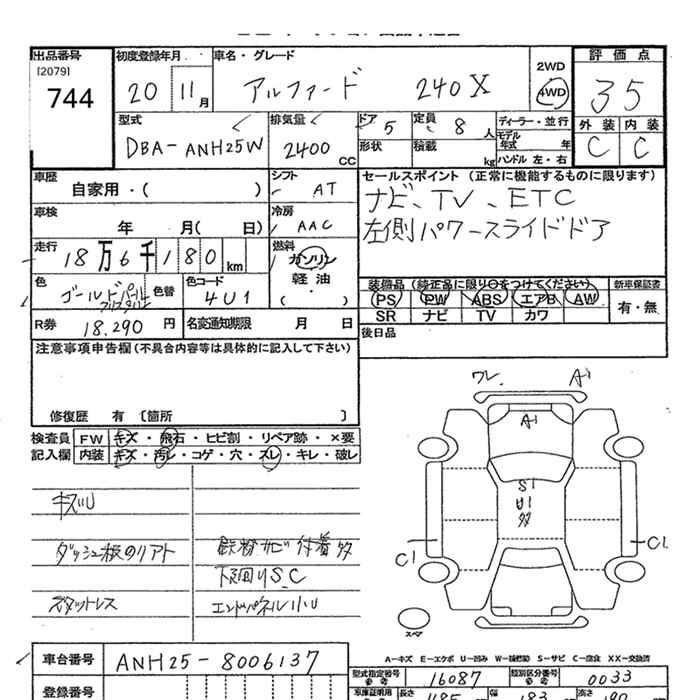 出品番号 初度登録年月 車名・グレード
[2079] 744
20 11月 アルファード 240X
2WD
4WD
評価点
35
外装 内装
C C
型式 排気量 ドア 定員 ディーラー・並行
DBA-ANH25W 2400CC 5 8人
モデル年式 年
形状 積載 kg ハンドル 左・右
車歴 シフト セールスポイント (正常に機能するものに限ります)
自家用・( ) AT ナビ、TV、ETC
車検 冷房 左側パワースライドドア
年 月( 日) AAC
走行 燃料
18万6千180km ガソリン
軽油
( ・ )
色 色替 色コード
ゴールドパール 4U1
装備品 (純正品に限り○をつけてください) 新車保証書
PS PW ABS エアB AW 有・無
SR ナビ TV カワ
R券 18.290円 名変通知期限 月 日 後日品
注意事項申告欄 (不具合内容等は具体的に記入して下さい)
修復歴 有 〔箇所 〕
検査員 FW キズ・飛石・ヒビ割・リペア跡・×要
記入欄 内装 キズ・汚レ・コゲ・穴・スレ・キレ・破レ
キズU
ダッシュ板のリアト
鉄粉サビ付着多
下廻りS.C
スタットレス エンドパネル小U
ワレ A1
A1
S1
U1
多
C1 C1
スペア
A－キズ E－エクボ U－凹み W－補修跡 S－サビ C－腐食 XX－交換済
車台番号 ANH25-8006137
型式指定番号 参考 16087 類別区分番号 参考 0033
登録番号
車庫証明用 長さ 485 幅 183 高さ 190